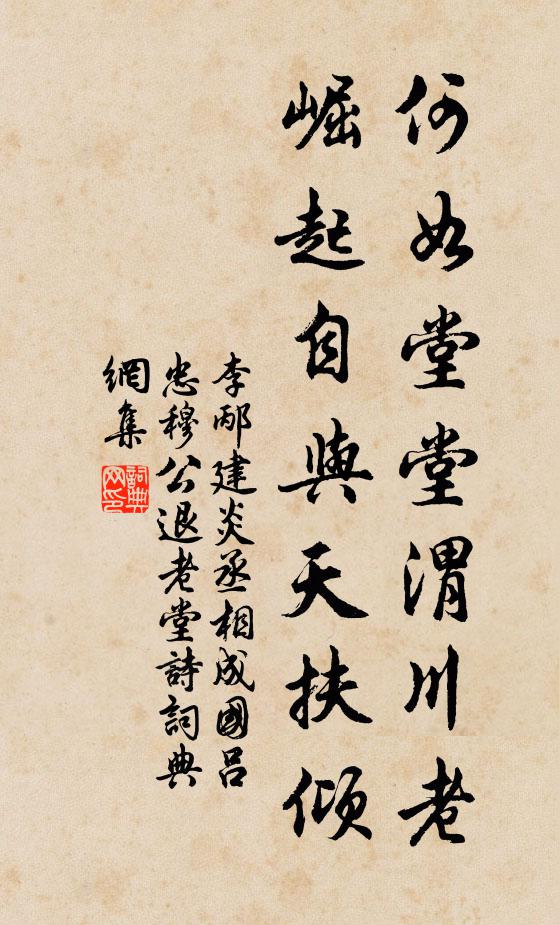 何如堂堂渭川老
崛起自與天扶傾
李邴建炎丞相成國呂
忠穆公退老堂詩詞典
網集
詞典網印